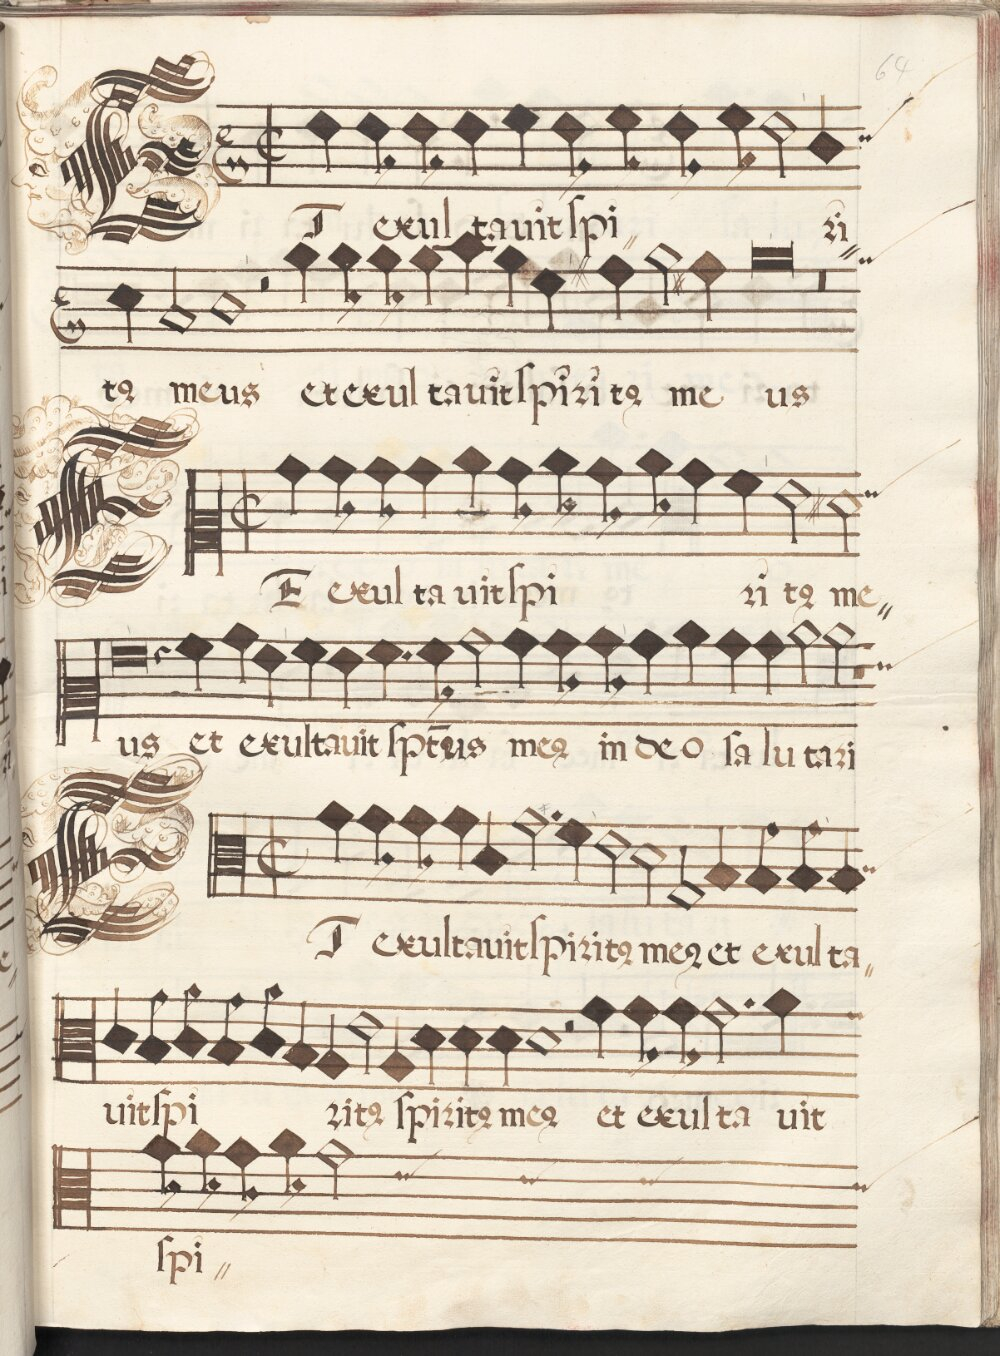 64
ET exultavit spi ri
tꝰ meus et exultavit spiritꝰ me us
EE exultavit spi ri tꝰ me
us et exultavit spt̄us meꝰ in deo salutari
ET exultavit spiritꝰ meꝰ et exulta
vit spi ritꝰ spiritꝰ meꝰ et exulta vit
spi